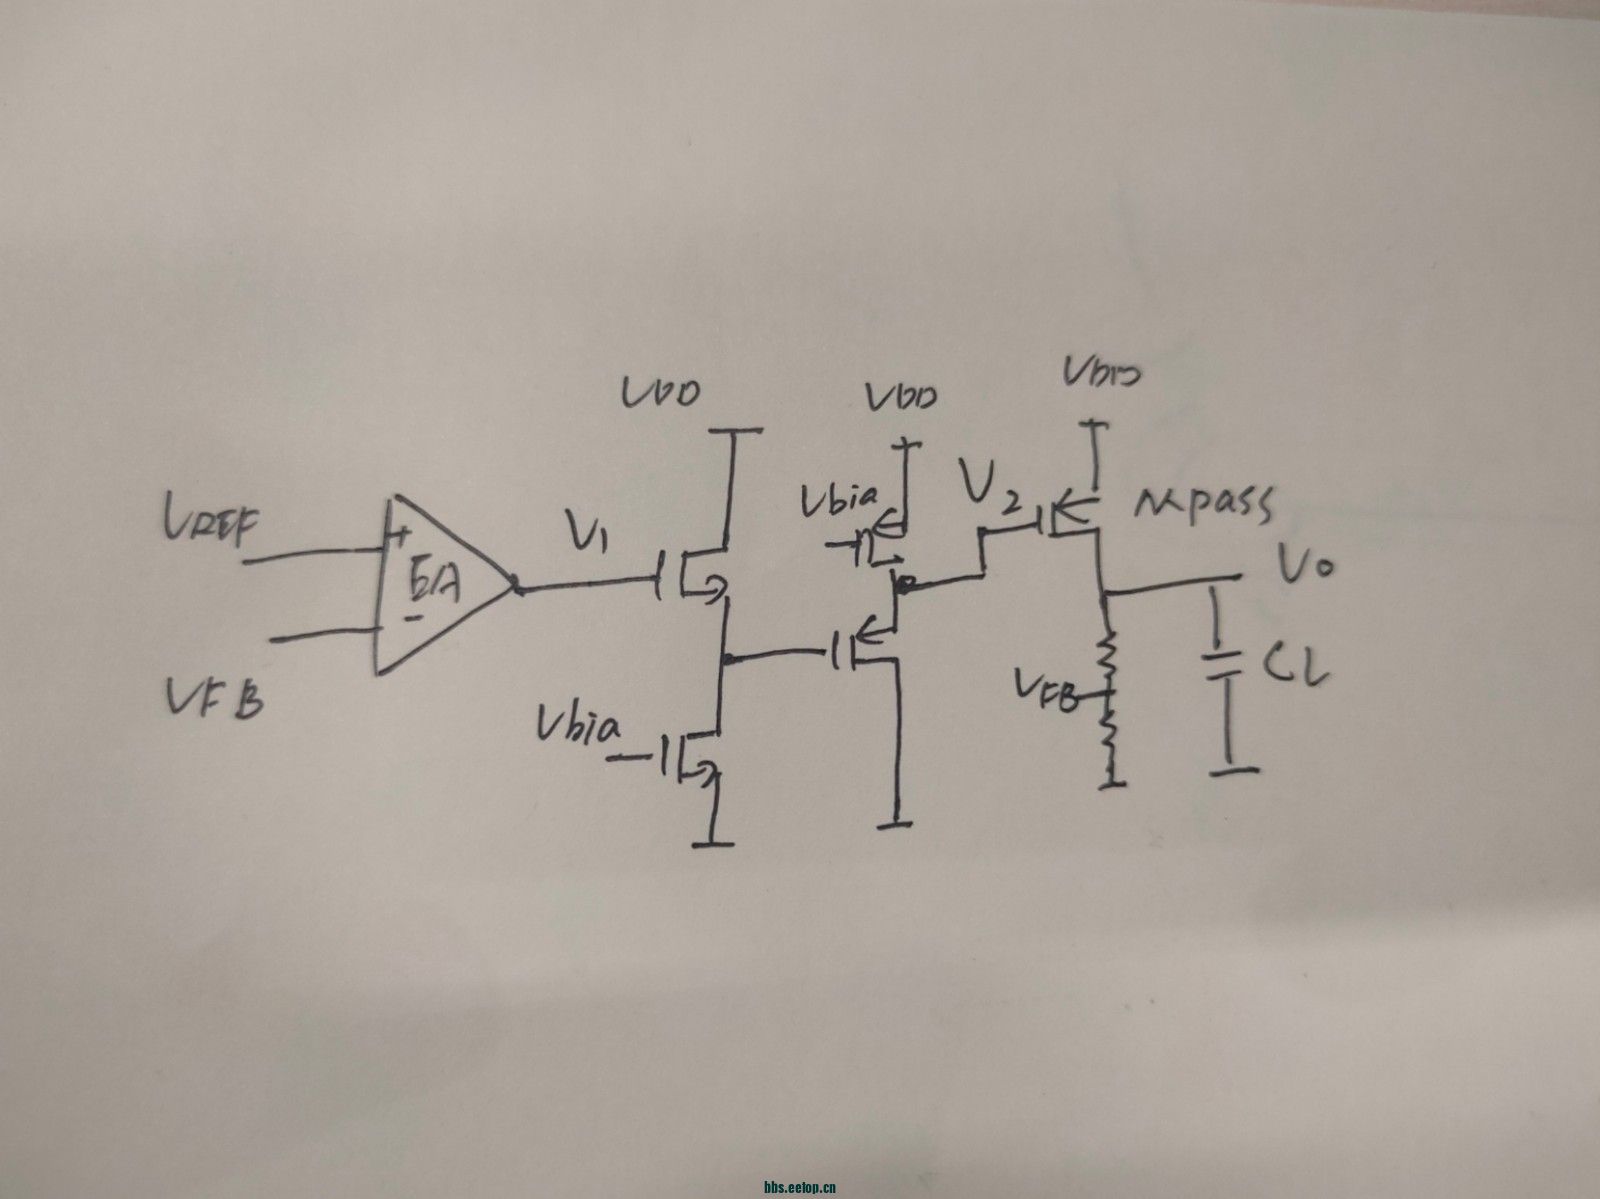 VDD
VDD
VDD
VREF
+
EA
-
VFB
V1
Vbia
V2
Mpass
Vo
Vbia
VFB
CL
bbs.eetop.cn